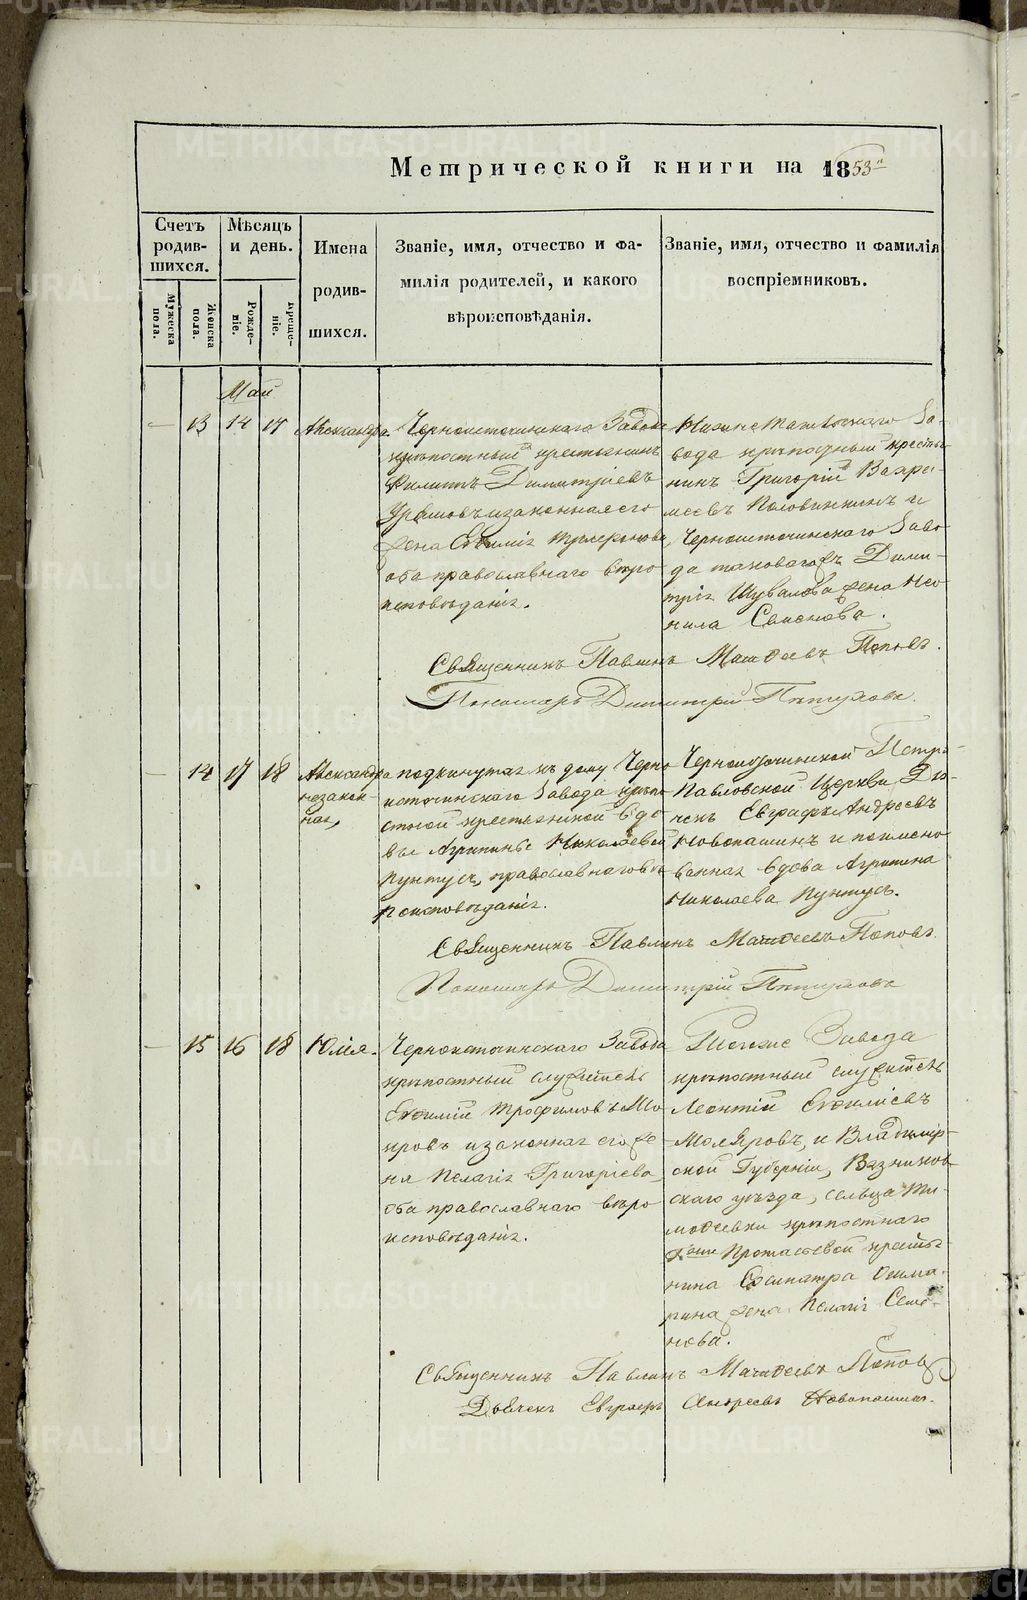 Метрической книги на 1853й
Счетъ родившихся.
Мѣсяцъ и день.
Имена родившихся.
Званіе, имя, отчество и фамилія родителей, и какого вѣроисповѣданія.
Званіе, имя, отчество и фамилія воспріемниковъ.
Мужеска пола.
Женска пола.
Рожденіе.
Крещеніе.
Май
— 13 14 17 Александра.
Черноисточинскаго Завода
крѣпостный крестьянинъ
Филиппъ Димитріевъ
и законная его
жена Евѳимія
оба православнаго вѣро
исповѣданія.
Нижнетагильскаго За-
вода крѣпостный крестья-
нинъ Григорій Вахра-
меевъ Половинкинъ и
Черноисточинскаго Заво-
да таковагожъ Дими-
трія Шувалова жена Нео-
нила Семенова.
Священникъ Павлинъ Матѳеевъ Поповъ.
Пономарь Димитрій Пѣтуховъ.
— 14 17 18 Александра
незакон-
ная,
подкинутая къ дому Черно
источинскаго Завода крѣпо
стной крестьянской вдо
вы Агрипины Николаевой
Пунтусъ, православнаго вѣ
роисповѣданія.
Черноисточинской Петро-
Павловской Церкви Дья-
чекъ Евграфъ Андреевъ
Новопашинъ и поимено
ванная вдова Агрипина
Николаева Пунтусъ.
Священникъ Павлинъ Матѳеевъ Поповъ.
Пономарь Димитрій Пѣтуховъ
— 15 16 18 Юлія.
Черноисточинскаго Завода
крѣпостный служитель
Евѳимій Трофимовъ Мо
кровъ и законная его же
на Пелагія Григоріева,
оба православнаго вѣро
исповѣданія.
Тогоже Завода
крѣпостный служитель
Леонтій Евѳиміевъ
Моляровъ, и Владимір-
ской Губерніи, Вязников-
скаго уѣзда, сельца Ти-
моѳеевки крѣпостнаго
Протасьевой крестья-
нина
жена Пелагія Семе-
нова.
Священникъ Павлинъ Матѳеевъ Поповъ
Дьячекъ Евграфъ Андреевъ Новопашинъ.
METRIKI.GASO-URAL.RU